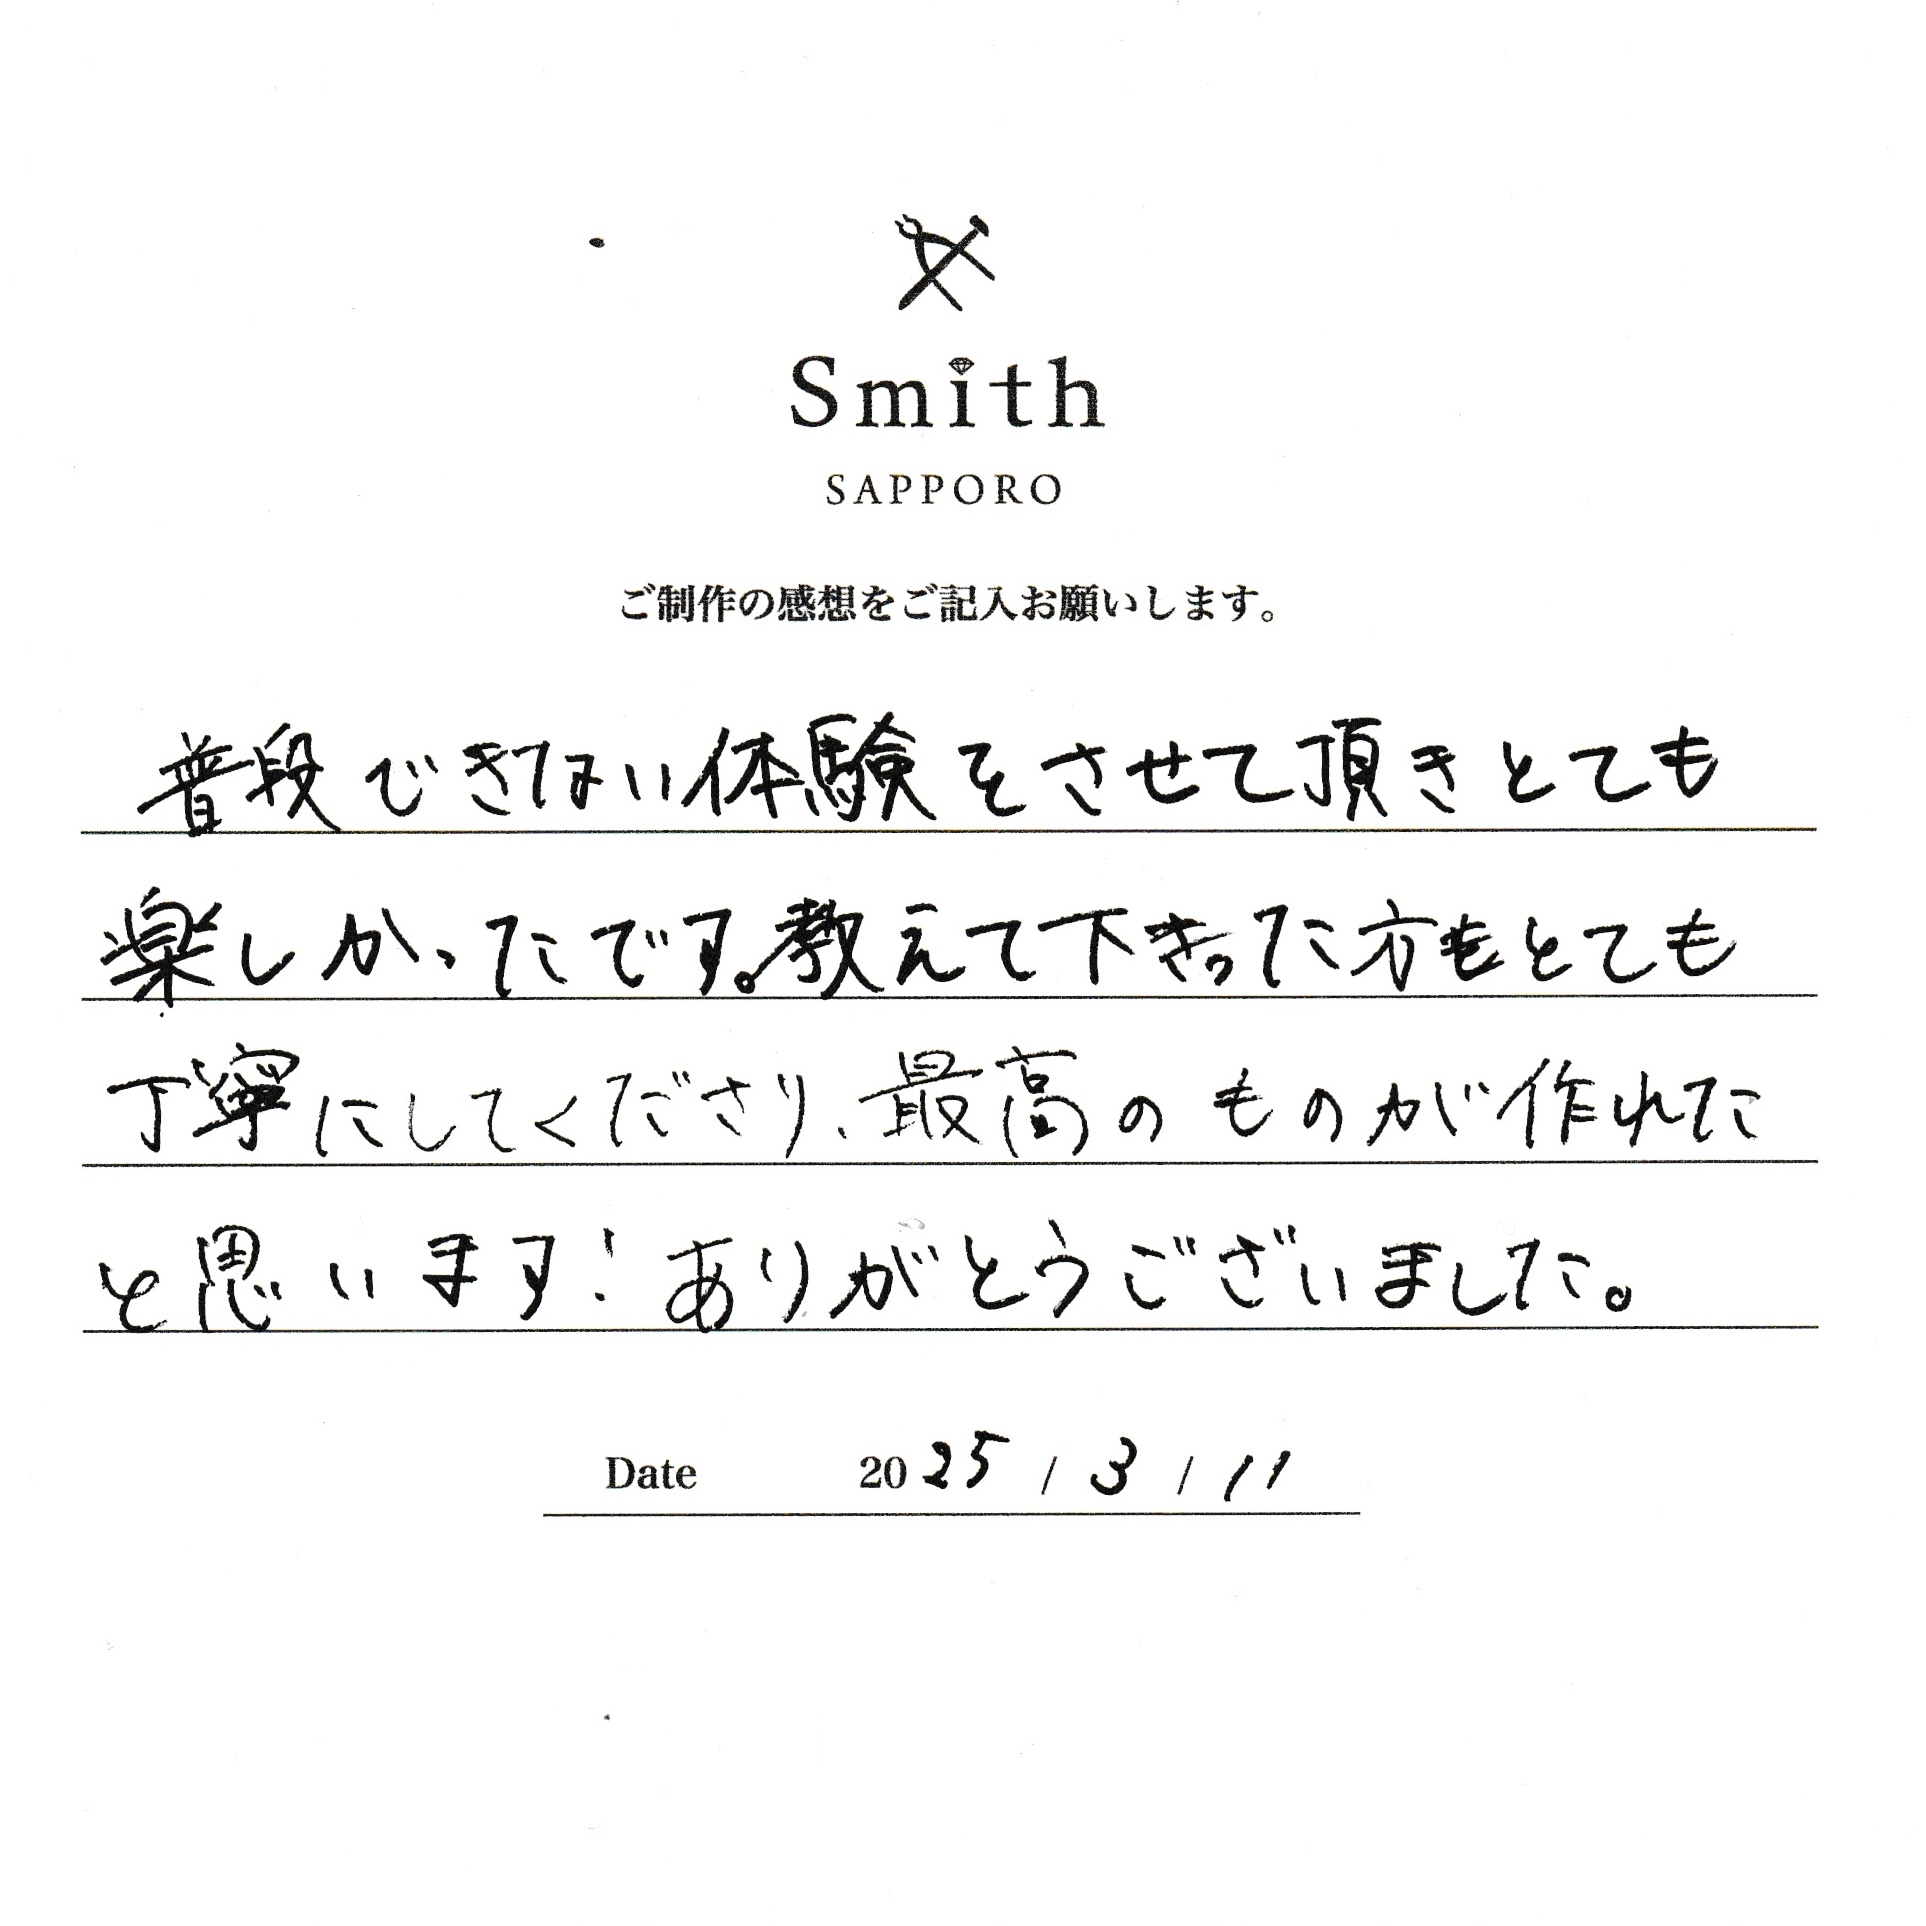 Smith
SAPPORO
ご制作の感想をご記入お願いします。
普段できない体験をさせて頂きとても
楽しかったです。教えて下さった方もとても
丁寧にしてくださり、最高のものが作れた
と思います！ありがとうございました。
Date 2025 / 3 / 11